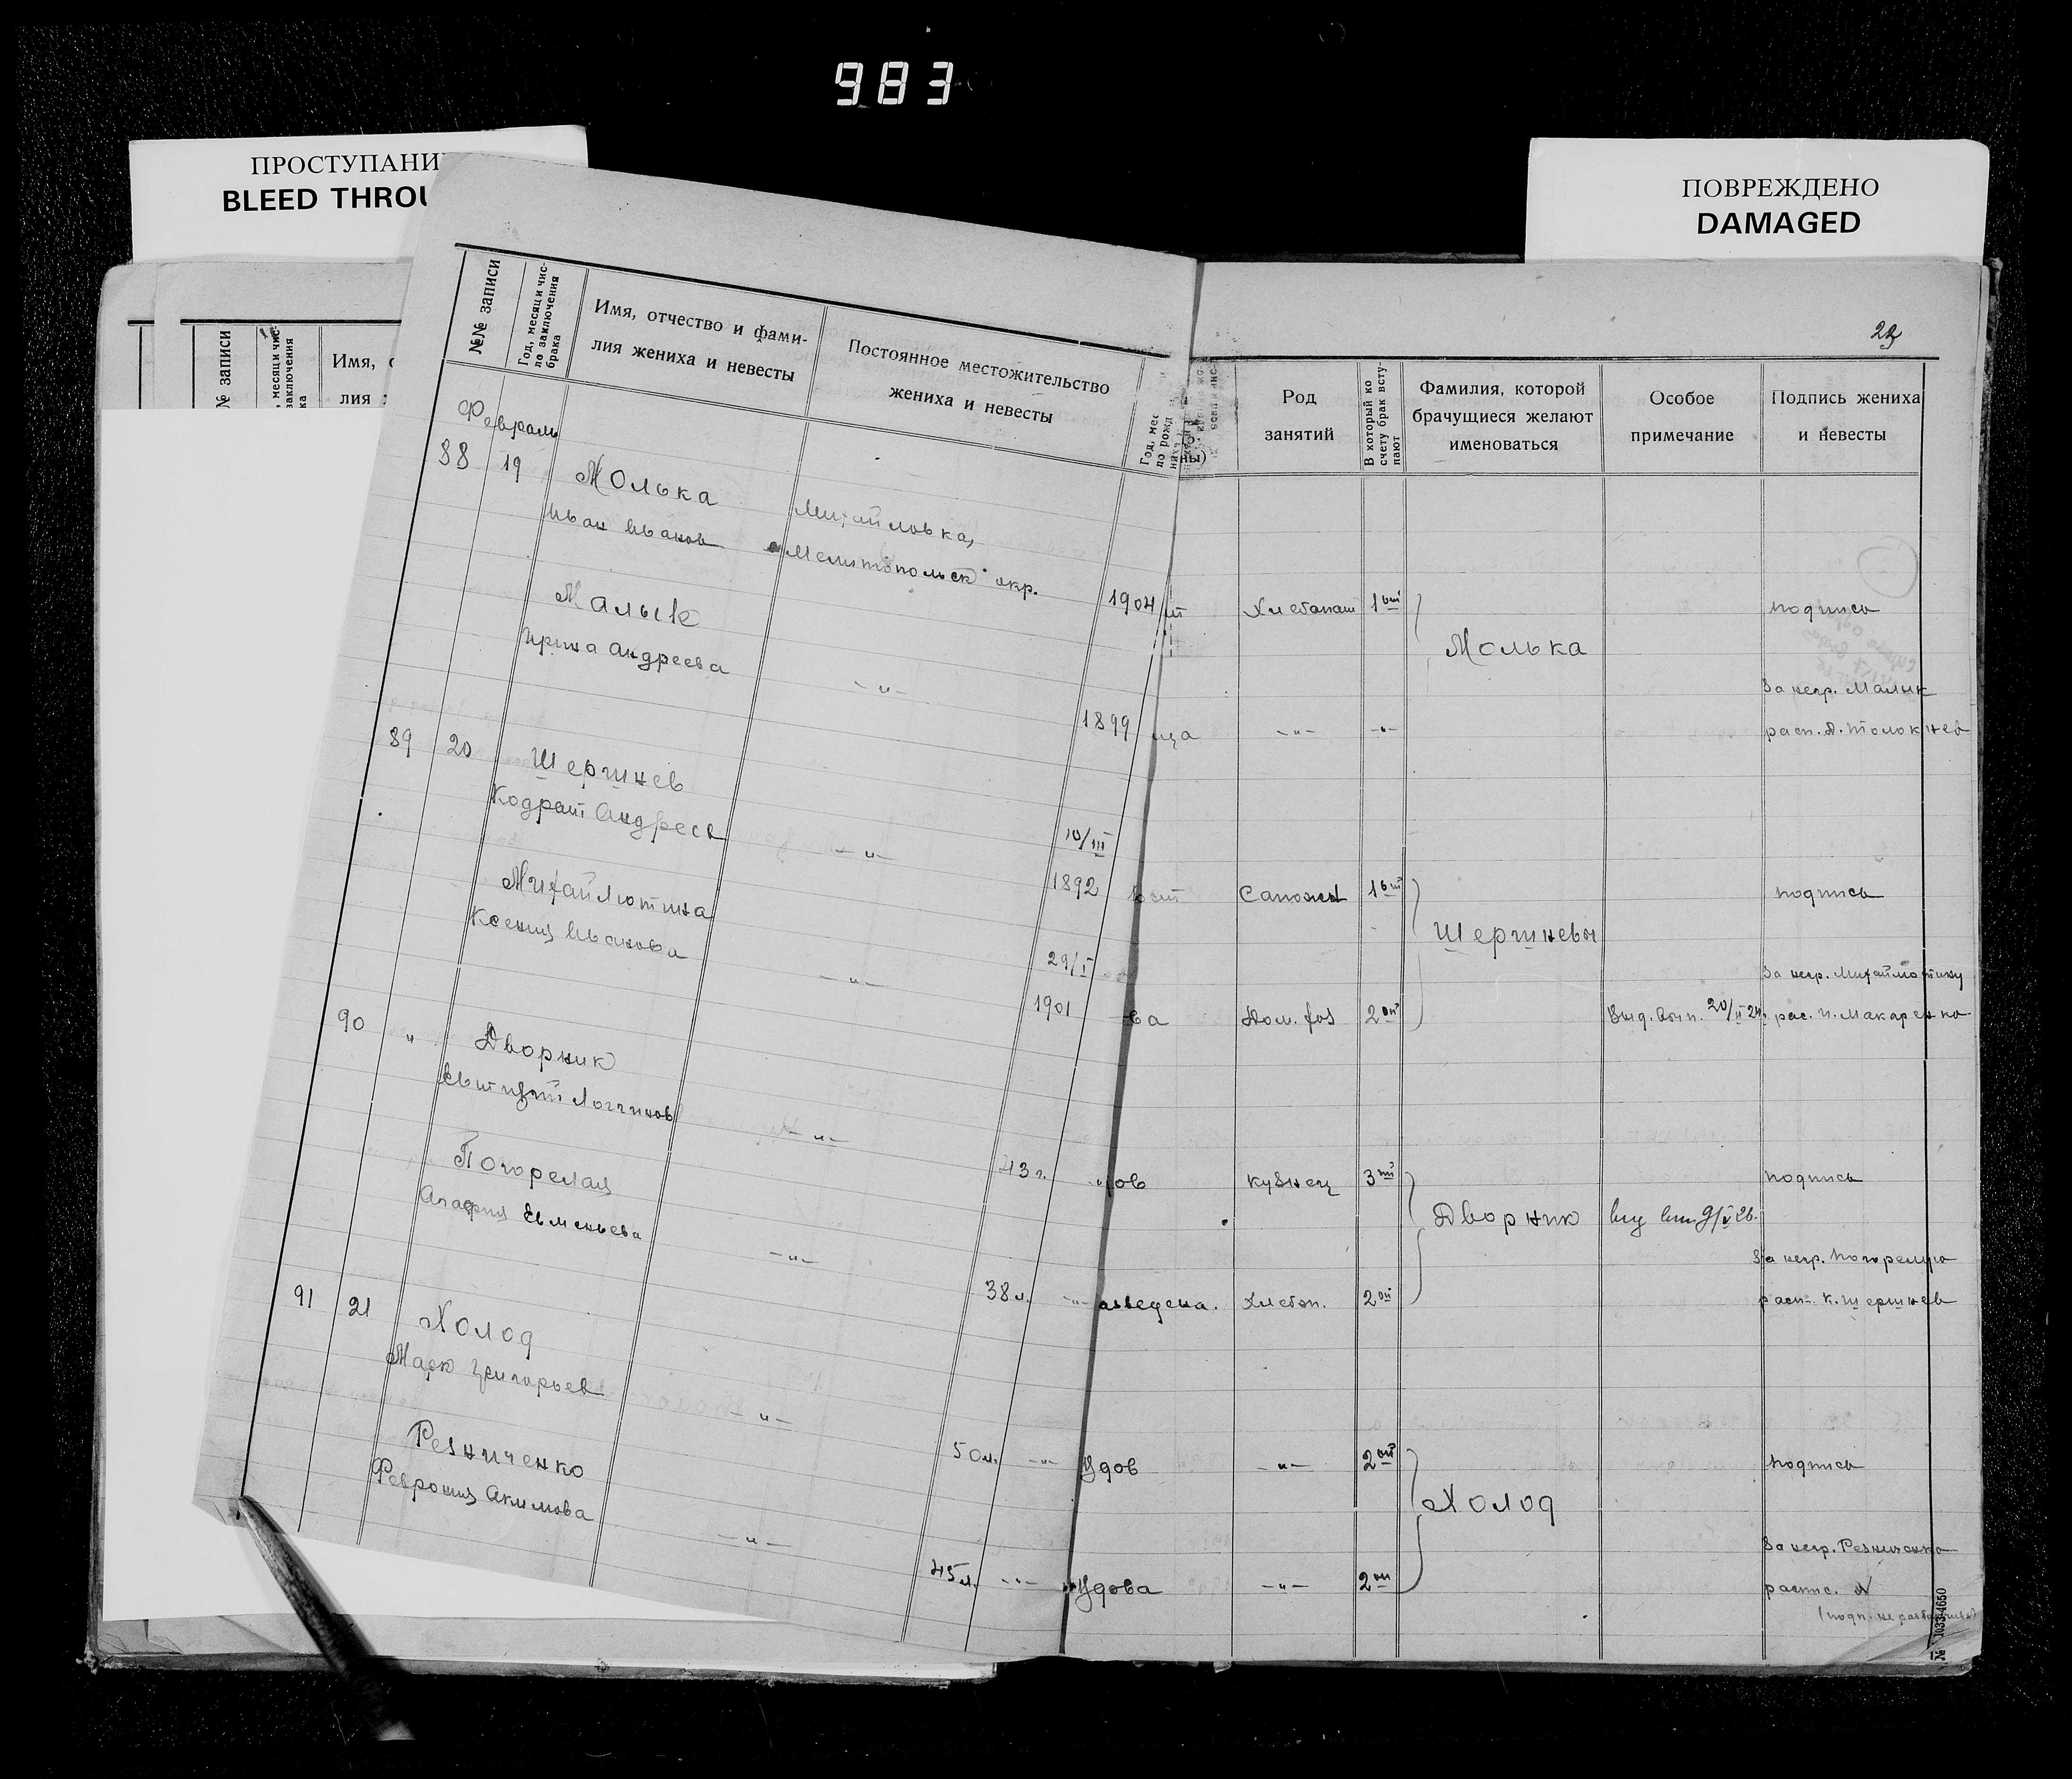 983
ПРОСТУПАНИ
BLEED THROU
ПОВРЕЖДЕНО
DAMAGED
№ записи
месяц и чис-
заключения
Имя,
лия
№№ записи
Год, месяц и чис-
ло заключения
брака
Имя, отчество и фами-
лия жениха и невесты
Постоянное местожительство
жениха и невесты
Год, мес
по рожд
ны)
Род
занятий
В который ко
счету брак всту-
пают
Фамилия, которой
брачущиеся желают
именоваться
Особое
примечание
Подпись жениха
и невесты
Февраль
88 19 Молька
Иван Иванов
Михайловка,
Мелитопольск окр.
1904
Хлебопаш 1ый
Молька
подпись
Малык
Ирина Андреева
-"-
1899
ица -"- -"-
За негр. Малык
расп. Толокнев
89 20 Шершнев
Кодрат Андреев
-"-
10/III
1892
ост Сапожн 1ый
Шершневы
подпись
Михайлютина
Ксения Иванова
-"-
29/I
1901
ва Дом. хоз 2ой
Выд. вып. 20/II 24.
За негр. Михайлютину
рас. И. Макаренко
90 " Дворник
Логгинов
-"-
43 г.
-"-
дов кузнец 3ий
Дворник
9/V 26.
подпись
Погорелая
Агафия Евменьева
-"-
38 л. -"-
азведена. Хлебоп. 2ой
За негр. Погорелую
расп. К. Шершнев
91 21 Холод
Марк Григорьев
-"-
50 л. -"-
Удов -"- 2ой
Холод
подпись
Резниченко
Феврония Акимова
-"-
45 л. -"-
Удова -"- 2ой
За негр. Резниченко
распис.
(подп. не разборчива)
№ 1033-4650